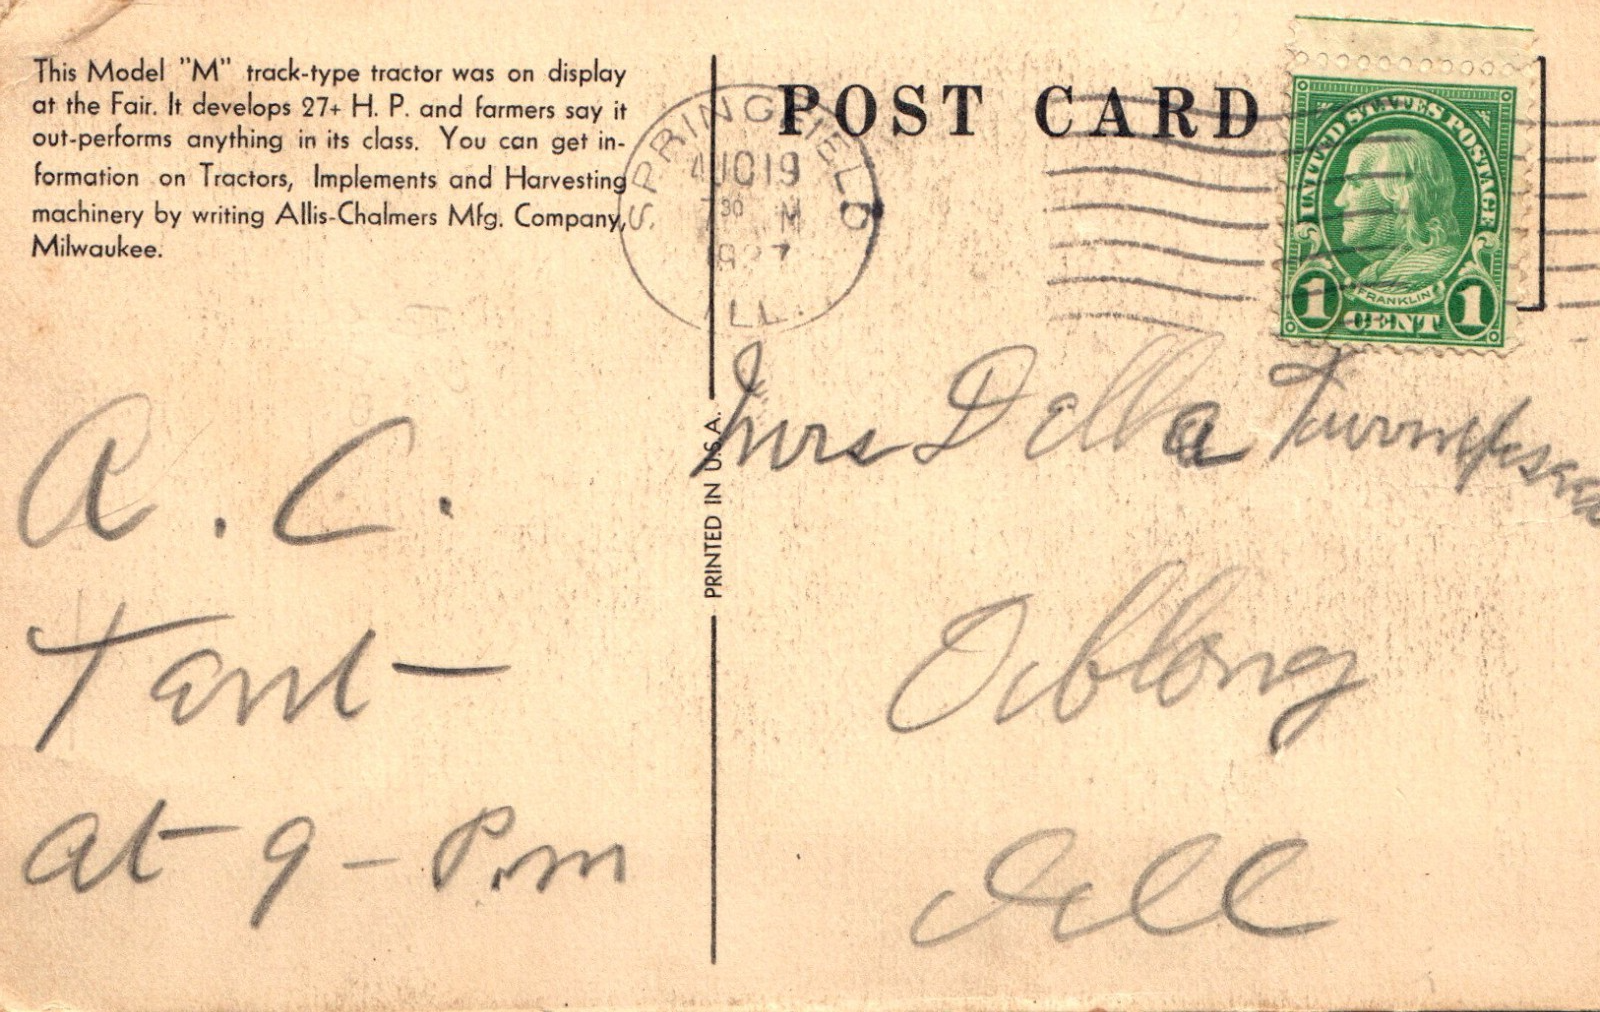 This Model "M" track-type tractor was on display
at the Fair. It develops 27+ H. P. and farmers say it
out-performs anything in its class. You can get in-
formation on Tractors, Implements and Harvesting
machinery by writing Allis-Chalmers Mfg. Company,
Milwaukee.
POST CARD
SPRINGFIELD
19
30 M
ILL.
UNITED STATES POSTAGE
FRANKLIN
1 CENT 1
PRINTED IN U.S.A.
A. C.
Tent
at 9 - P.m
Mrs Della
Oblong
Ill